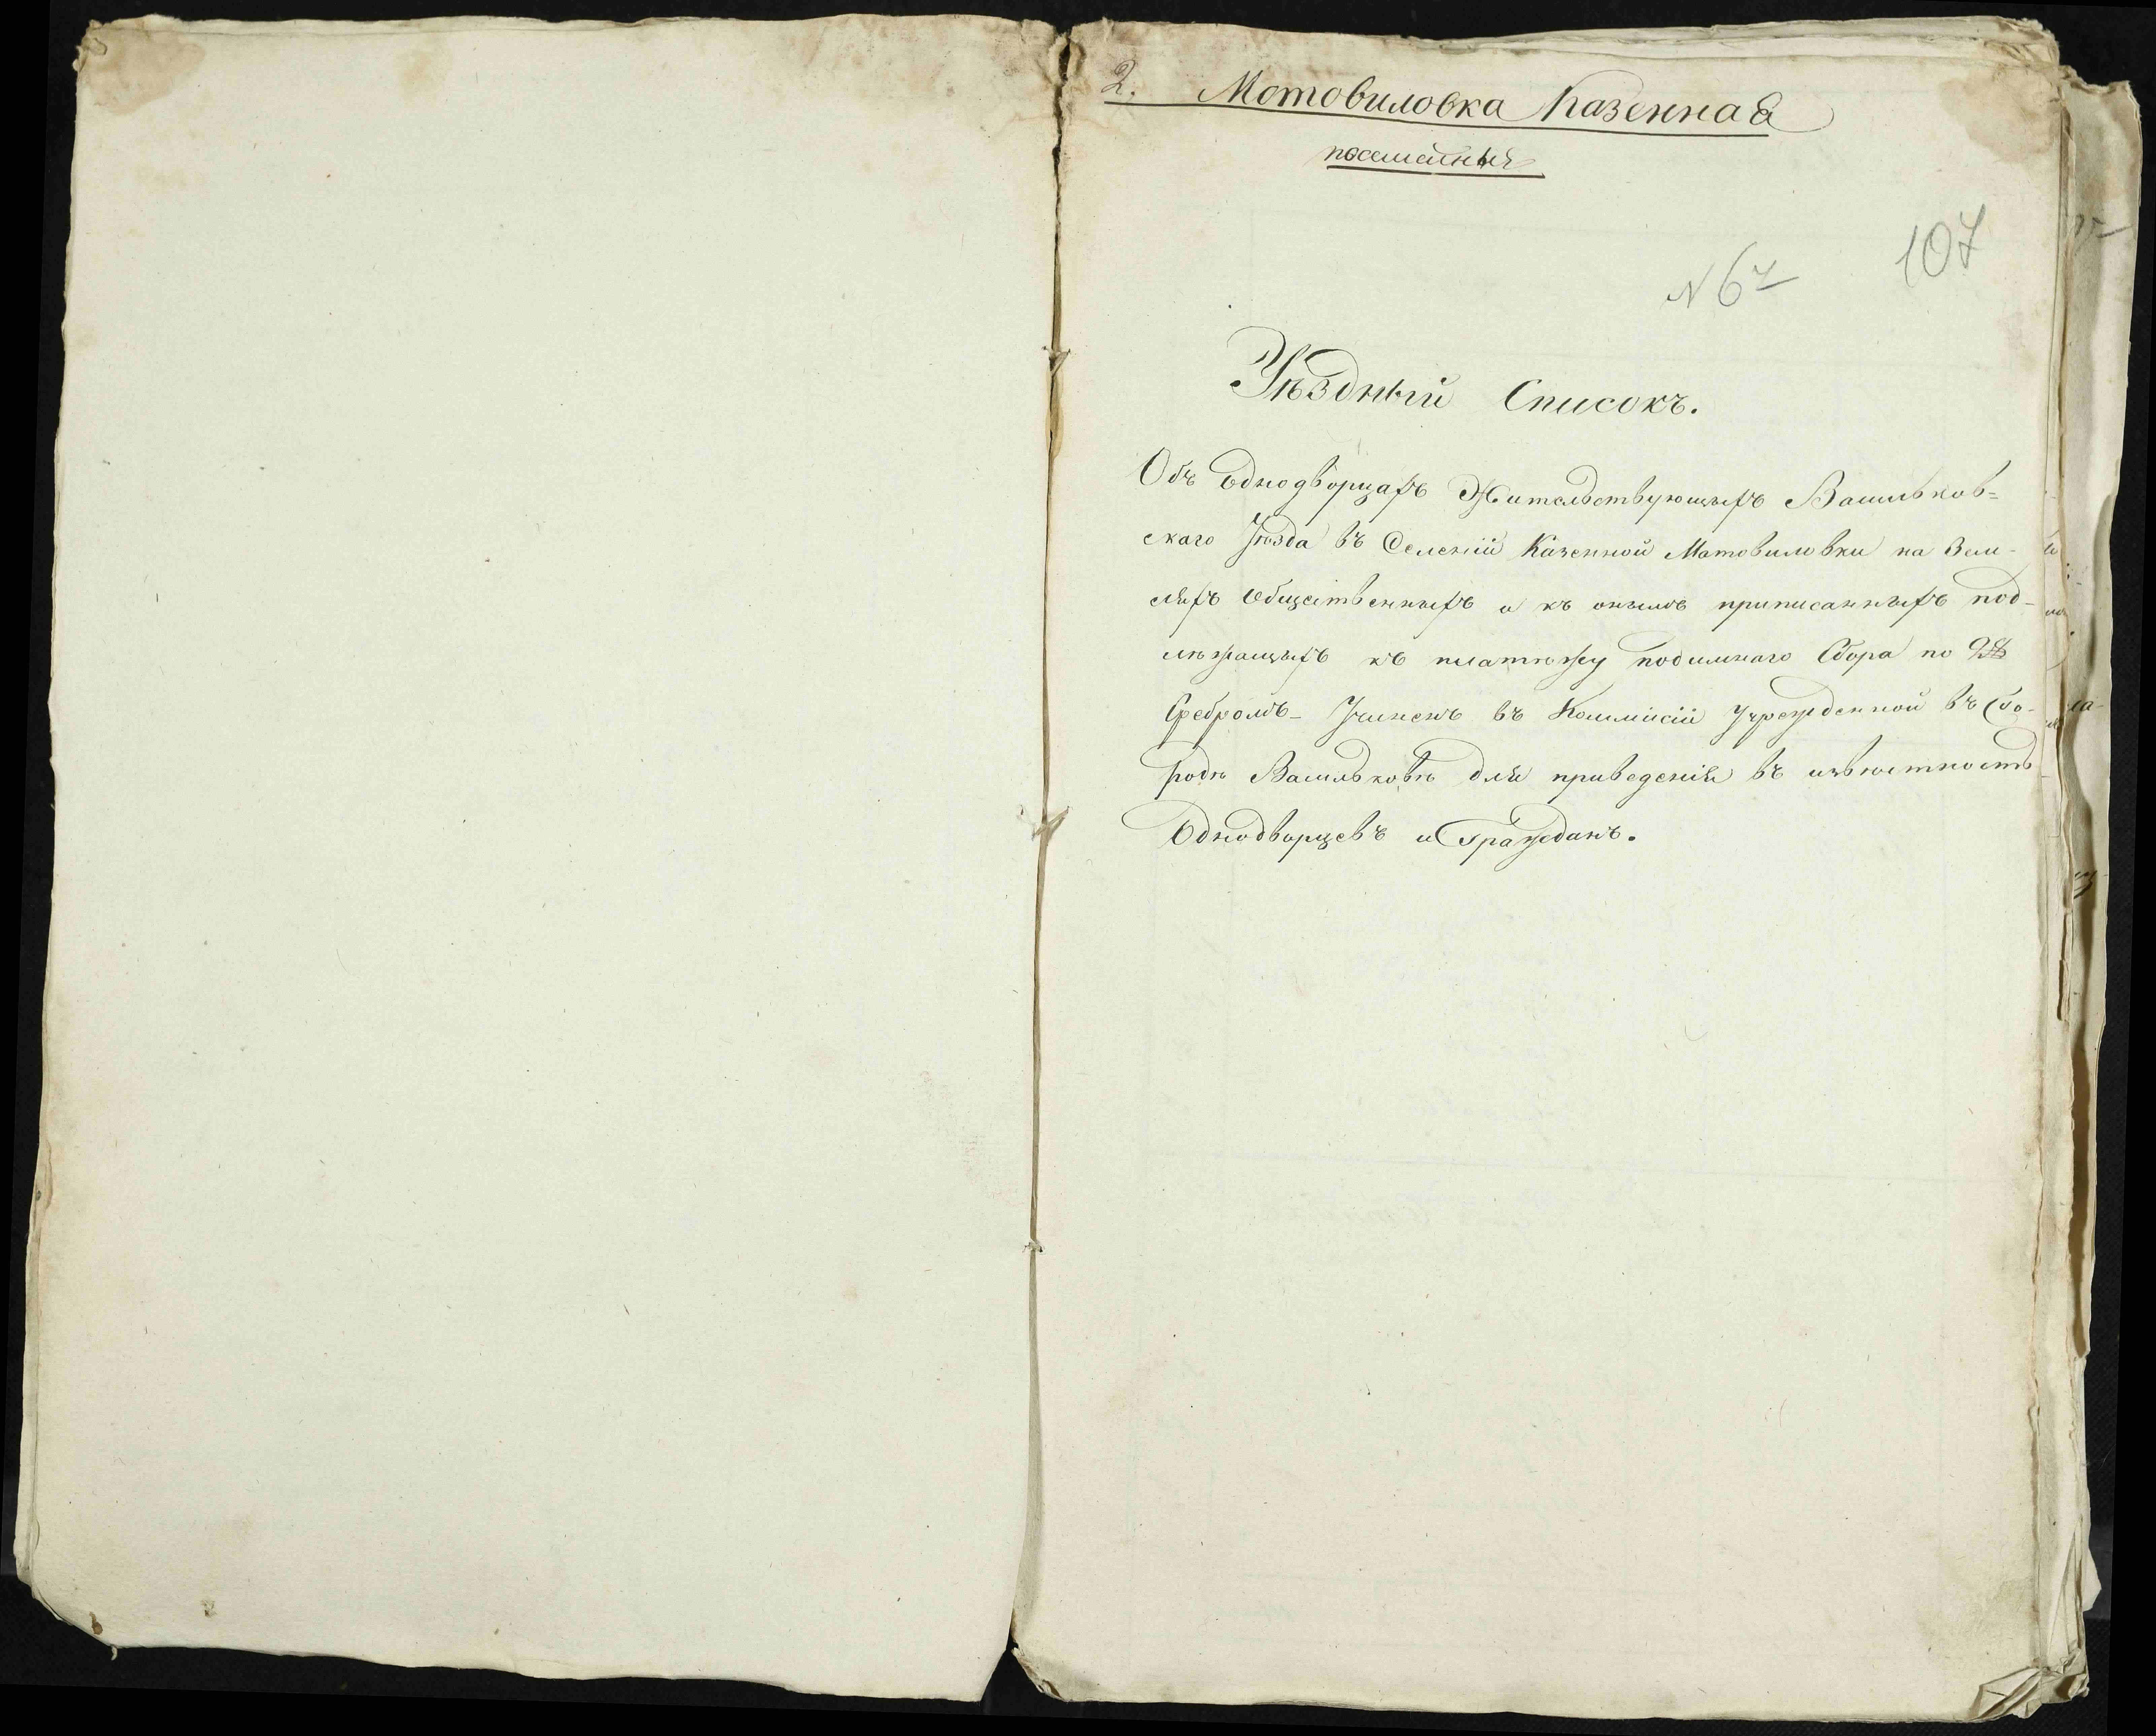 2. Мотовиловка Казенная
посемейный
N 67
107
Уѣздный Списокъ.
Объ Однодворцахъ Жительствующихъ Васильков=
скаго Уѣзда въ Селеніи Казенной Мотовиловки на Зем-
ляхъ Общественныхъ и къ онымъ приписанныхъ под-
лѣжащихъ къ платѣжу подымнаго Сбора по
Сребромъ - Учиненъ въ Коммисіи Учрежденной въ Го-
родѣ Васильковѣ для приведенія въ извѣстность
Однодворцевъ и Гражданъ.